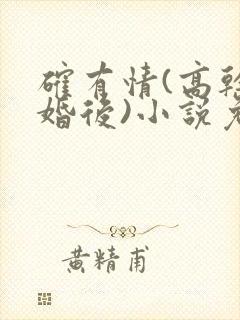 確有情(高幹
婚後)小說
黃精甫